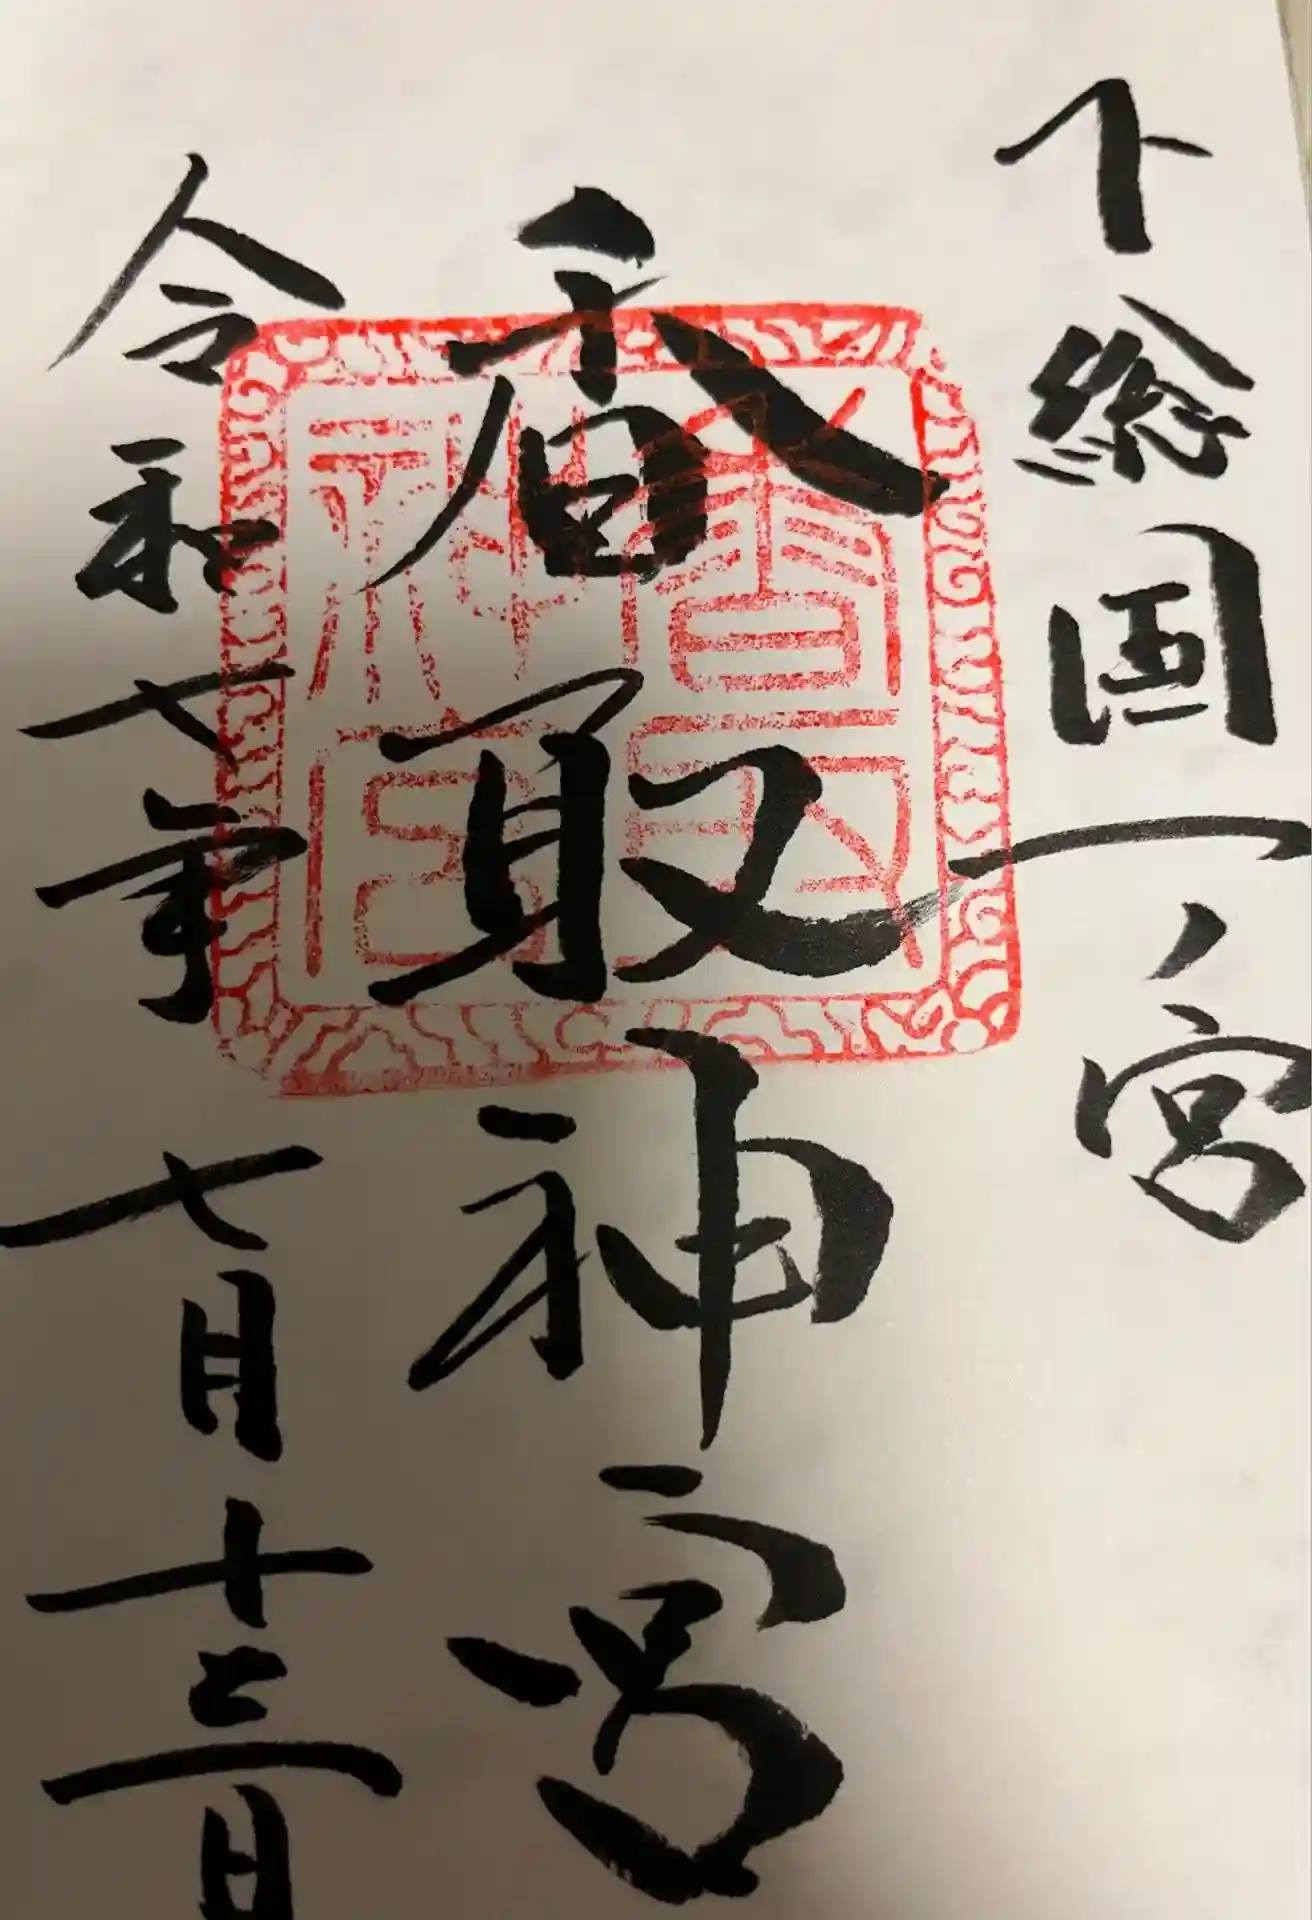 下総国一ノ宮
香取神宮
香取神宮
令和七年七月十三日